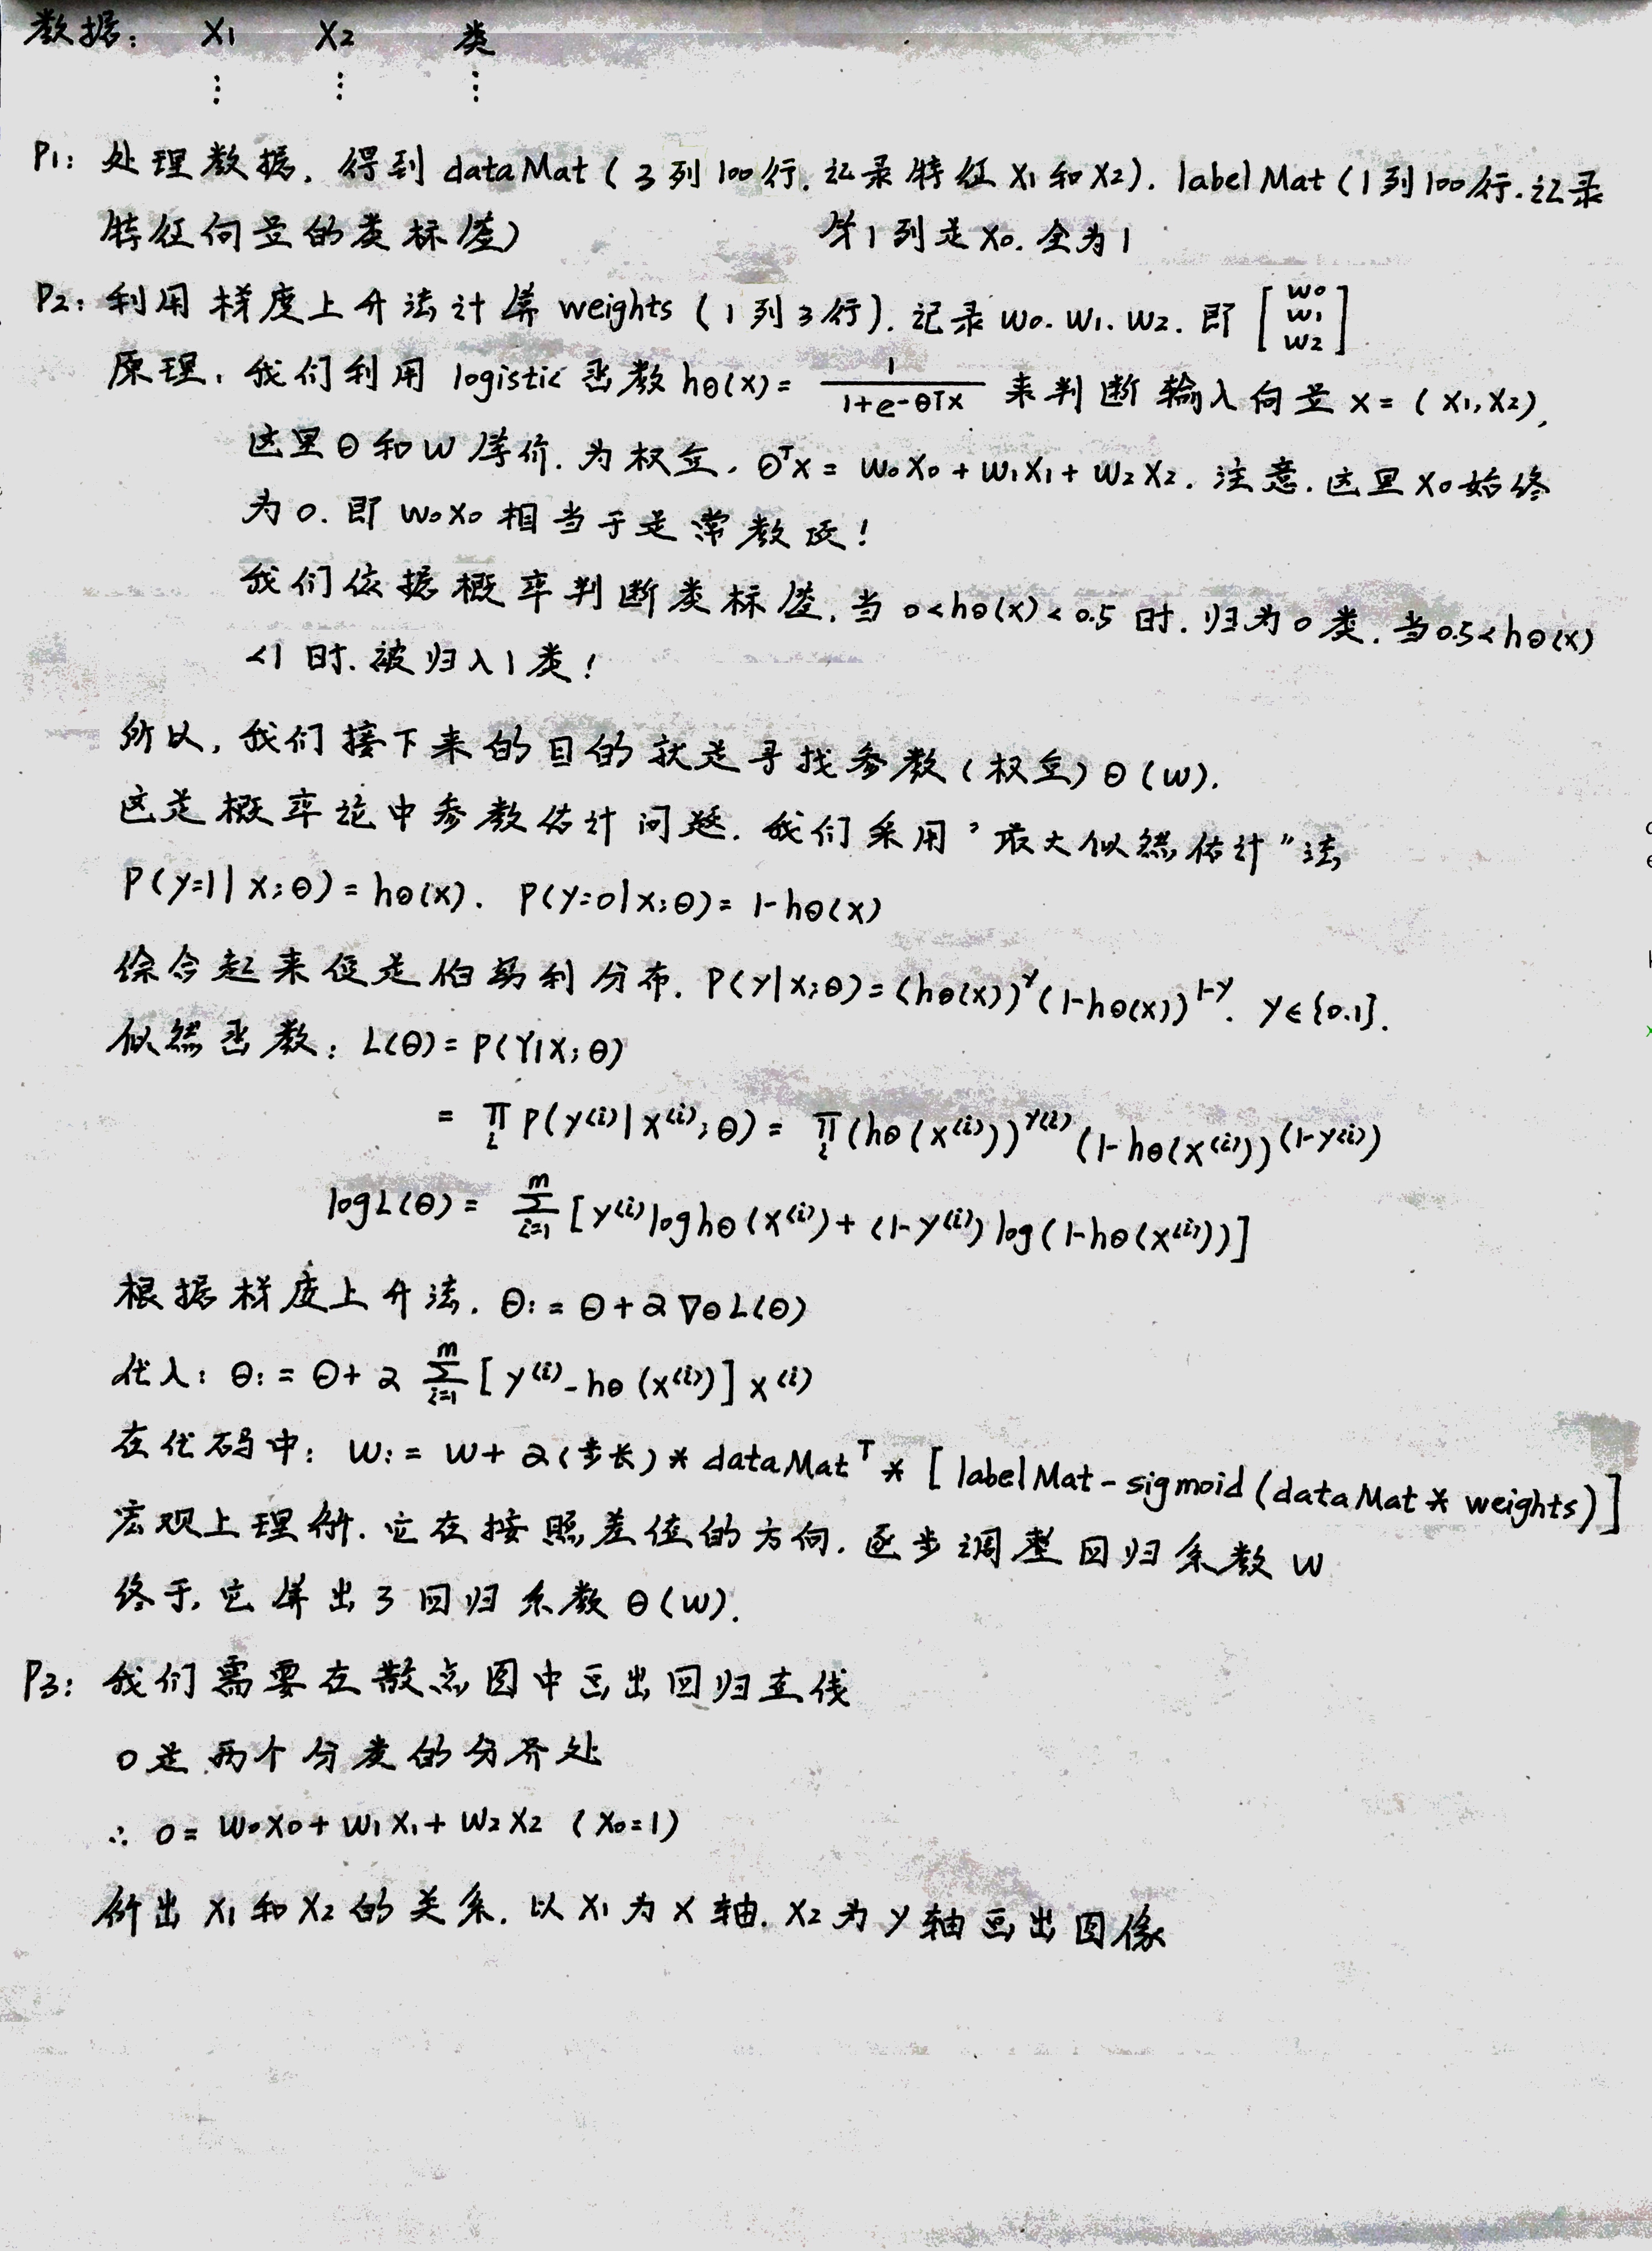 数据： X1 X2 类
⋮ ⋮ ⋮
P1: 处理数据，得到 dataMat (3列100行，记录特征X1和X2)，labelMat (1列100行，记录
特征向量的类标签) 第1列是X0，全为1
P2: 利用梯度上升法计算 weights (1列3行)，记录 w0. w1. w2. 即 [w0 w1 w2]
原理，我们利用 logistic 函数 hθ(x) = 1/(1+e-θTx) 来判断输入向量 x = (x1, x2),
这里θ和W等价，为权重，θᵀx = w0x0 + w1x1 + w2x2. 注意，这里x0始终
为0. 即 w0x0 相当于是常数项！
我们依据概率判断类标签，当 0<hθ(x)<0.5 时，归为0类，当0.5<hθ(x)
<1 时，被归入1类！
所以，我们接下来的目的就是寻找参数(权重)θ(w).
这是概率论中参数估计问题. 我们采用"最大似然估计"法
P(y=1|x;θ) = hθ(x). P(y=0|x;θ) = 1-hθ(x)
综合起来便是伯努利分布. P(y|x;θ) = (hθ(x))^y (1-hθ(x))^1-y. y∈{0.1}.
似然函数: L(θ) = P(Y|X;θ)
= ∏i P(y(i)|x(i);θ) = ∏i (hθ(x(i)))^y(i) (1-hθ(x(i)))^(1-y(i))
logL(θ) = Σ_{i=1}^m [y(i)loghθ(x(i)) + (1-y(i)) log(1-hθ(x(i)))]
根据梯度上升法. θ:= θ+α∇θL(θ)
代入: θ:= θ+ α Σ_{i=1}^m [y(i)-hθ(x(i))] x(i)
在代码中: W:= W+ α(步长) * dataMatᵀ * [labelMat-sigmoid(dataMat * weights)]
宏观上理解. 它在按照差值的方向. 逐步调整回归系数 W
终于, 它算出了回归系数θ(W).
P3: 我们需要在散点图中画出回归直线
0是两个分类的分界处
∴ 0 = W0X0 + W1X1 + W2X2 (X0=1)
解出 X1 和 X2 的关系. 以 X1 为 X 轴. X2 为 y 轴画出图像